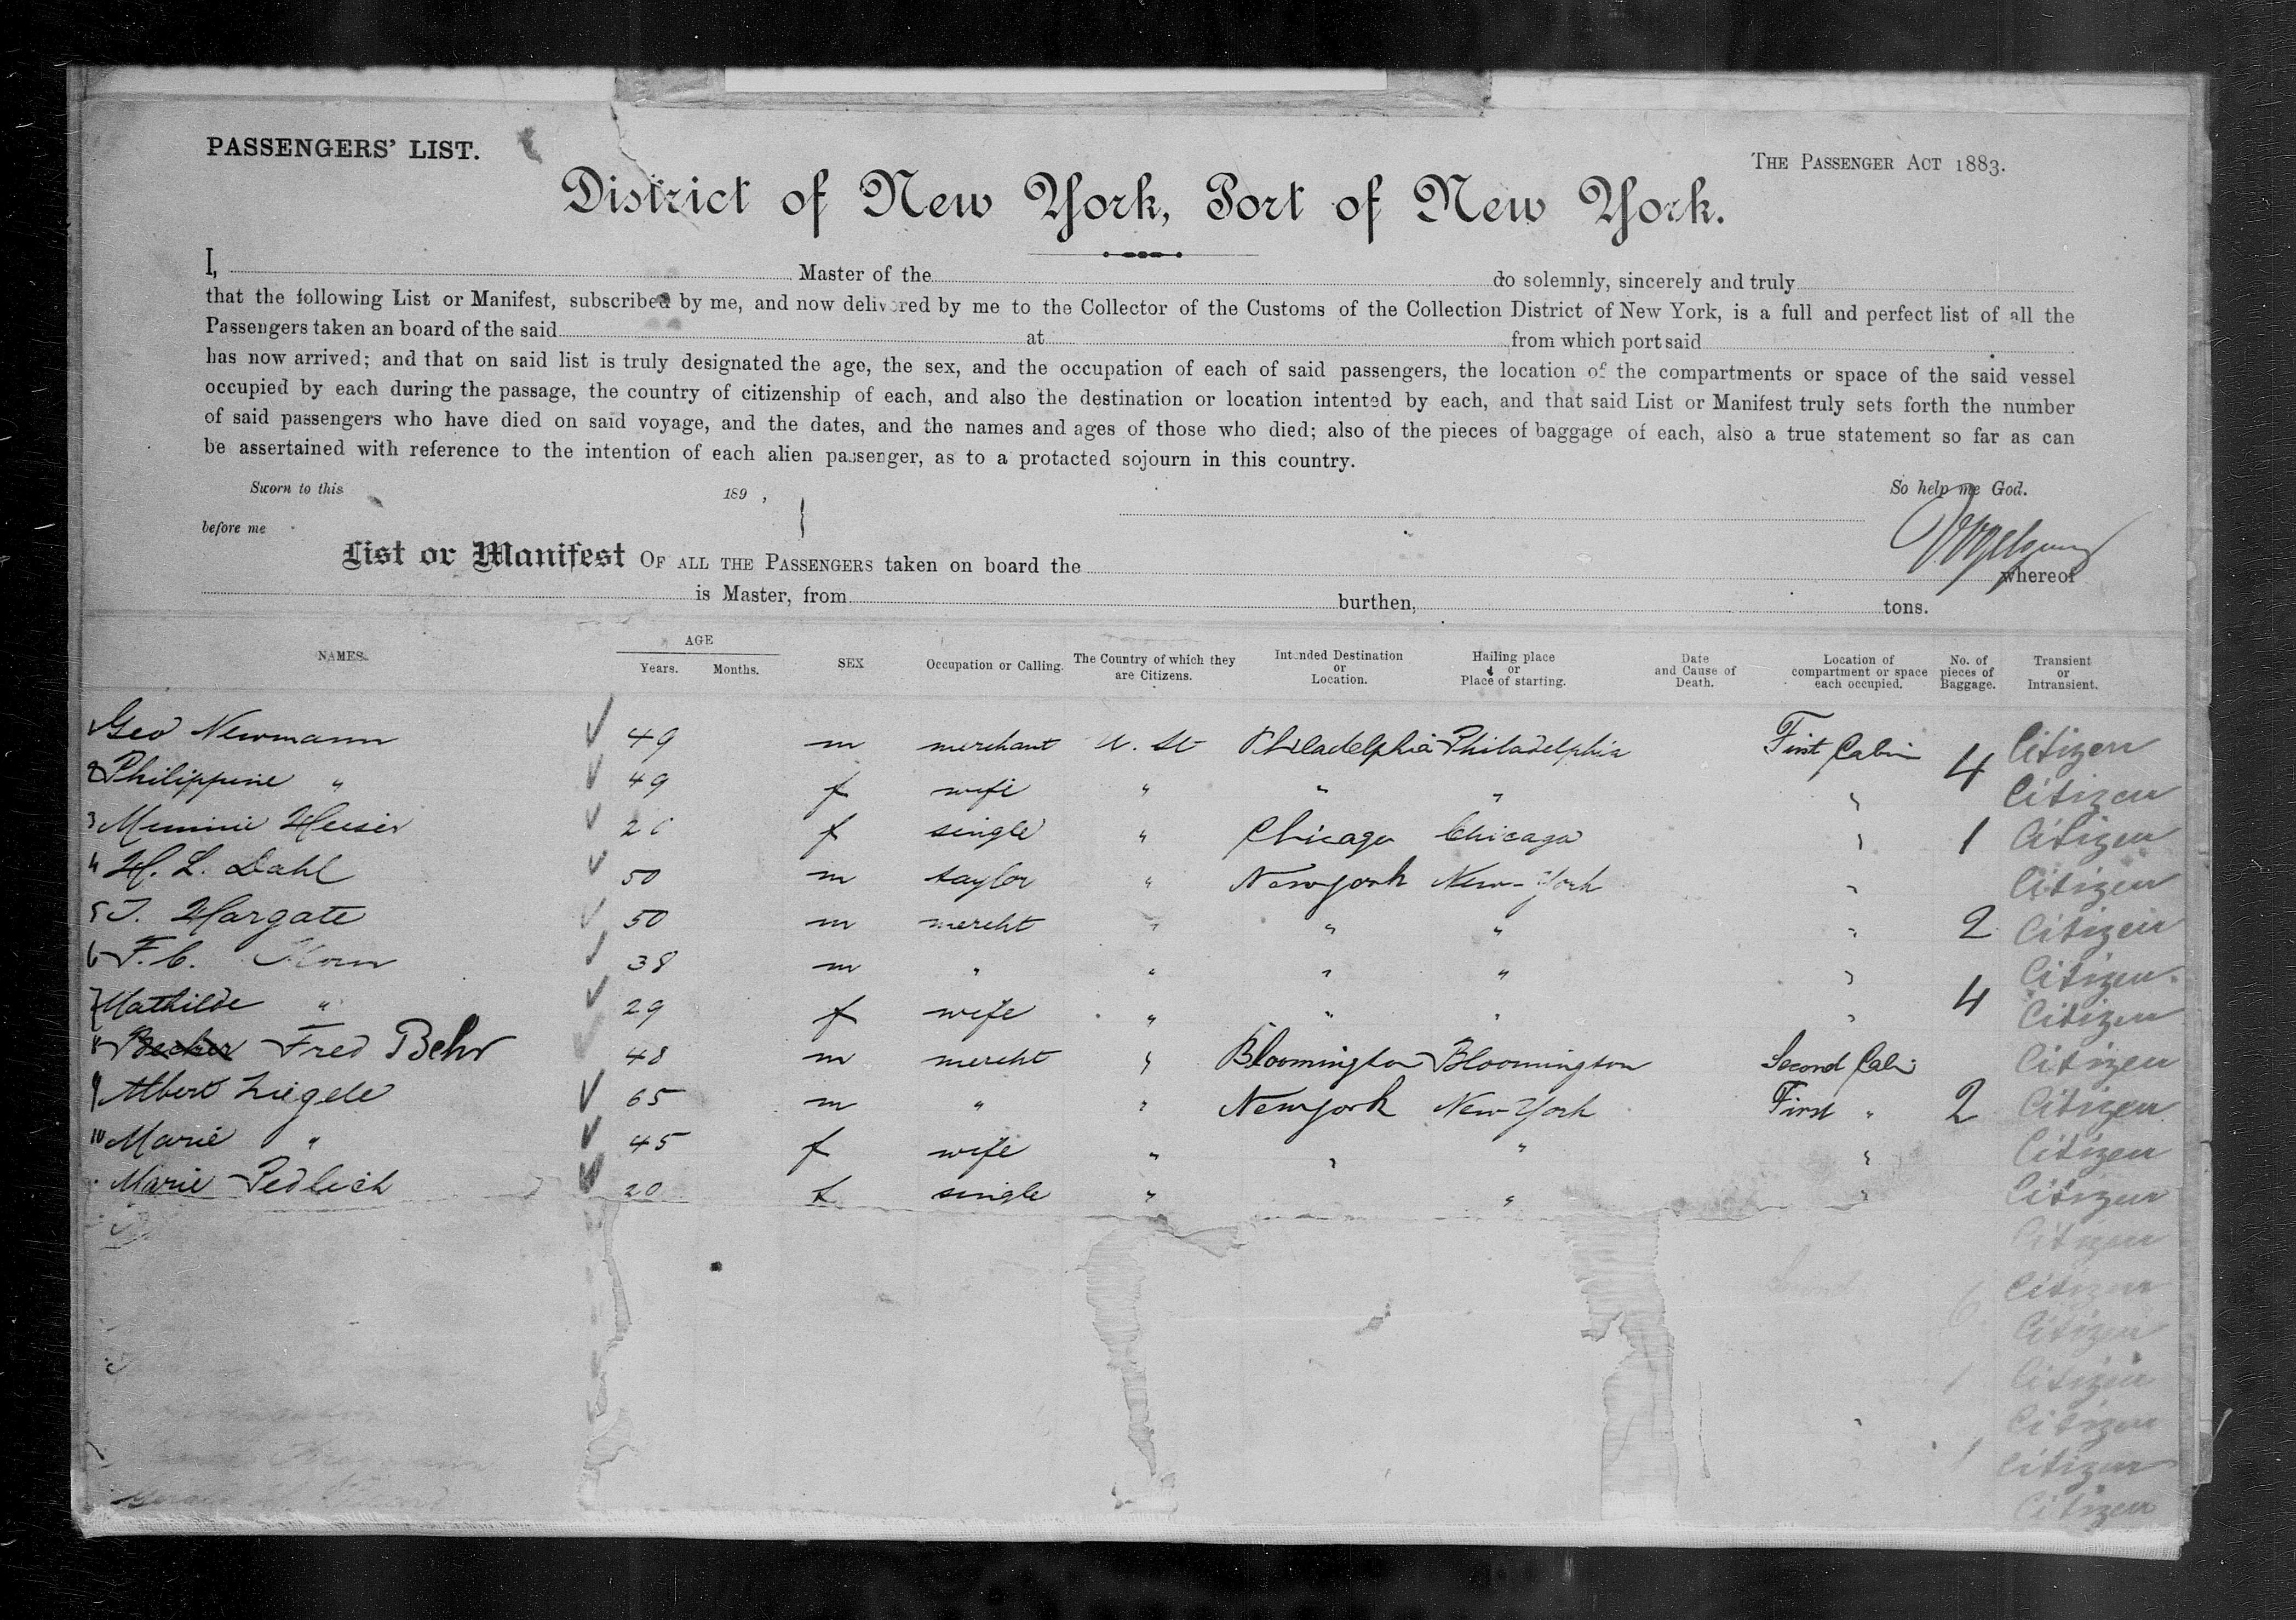 PASSENGERS' LIST.
THE PASSENGER ACT 1883.
District of New York, Port of New York.
I, Master of the do solemnly, sincerely and truly
that the following List or Manifest, subscribed by me, and now delivered by me to the Collector of the Customs of the Collection District of New York, is a full and perfect list of all the
Passengers taken an board of the said at from which port said
has now arrived; and that on said list is truly designated the age, the sex, and the occupation of each of said passengers, the location of the compartments or space of the said vessel
occupied by each during the passage, the country of citizenship of each, and also the destination or location intented by each, and that said List or Manifest truly sets forth the number
of said passengers who have died on said voyage, and the dates, and the names and ages of those who died; also of the pieces of baggage of each, also a true statement so far as can
be assertained with reference to the intention of each alien passenger, as to a protacted sojourn in this country.
Sworn to this 189 , So help me God.
before me
List or Manifest OF ALL THE PASSENGERS taken on board the whereof
is Master, from burthen, tons.
NAMES. AGE Years. Months. SEX Occupation or Calling. The Country of which they are Citizens. Intended Destination or Location. Hailing place or Place of starting. Date and Cause of Death. Location of compartment or space each occupied. No. of pieces of Baggage. Transient or Intransient.
1 Geo Newmann 49 m merchant U. St Philadelphia Philadelphia First Cabin 4 Citizen
2 Philippine " 49 f wife " " " " Citizen
3 Minnie Heiser f single " Chicago Chicago " 1 Citizen
4 H. L. Dahl 50 m taylor " New York New-York " Citizen
5 J. Hargate 50 m mercht " " " " 2 Citizen
6 F. C. 38 m " " " " " Citizen.
7 Mathilde " 29 f wife " " " " 4 Citizen
8 Becker Fred Behr 48 m mercht " Bloomington Bloomington Second Cabin Citizen
9 Albert Ziegele 65 m " " New York New-York First " 2 Citizen
10 Marie " 45 f wife " " " " Citizen
Marie Pedlich 20 f single " " " Citizen
Citizen
6 Citizen
Citizen
1 Citizen
Citizen
1 Citizen
Citizen